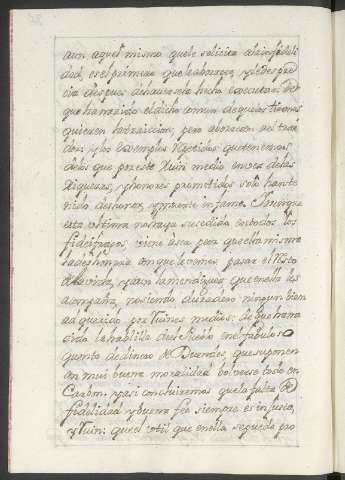 aun aquel mismo que le solicita ala infideli
dad, es el primero que le aborrece, y le despre
cia despues de haversela hecho executar: de
que ha nacido el dicho comun de que los tiranos
quieren la traicion, pero aborrecen al trai
dor: y los exemplos repetidos que tenemos
delos que por este ruin medio en vez delas
riquezas, y honores prometidos solo han te
nido deshonrras, y muerte infame. Y aunque
esta ultima no haya sucedido con todos los
fidefragos, viene a ser peor que ella misma
la deshonrra con que le vemos pasar el resto
de la vida, y aun la mendiguez que en ella les
acompaña, no siendo duradero ningun bien
adquirido por ruines medios: de que ha na
cido la hablilla del
quento del dinero de Duendes, que suponen
con mui buena moralidad bolverse todo en
Carbon. y asi concluiremos que la falta de
fidelidad y buena fee siempre es infausta,
y Ruin: que el util que en ella se pueda pro